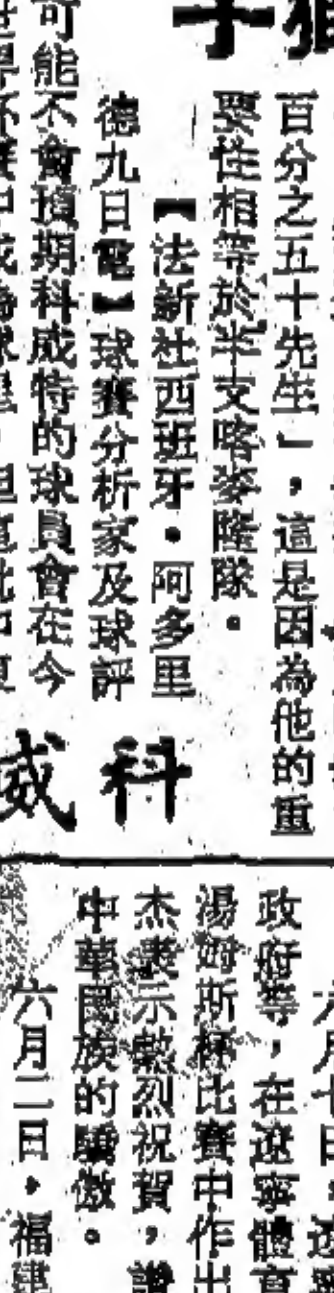 百分之五十先生」，這是因為他的重
要性相等於半支喀麥隆隊。
【法新社西班牙·阿多里
德九日電】球賽分析家及球評
可能不會預期科威特的球員會在今
科威
政府等，在遼寧體育
湯姆斯杯比賽中作出
杰表示熱烈祝賀，讚
中華民族的驕傲。
六月二日，福建